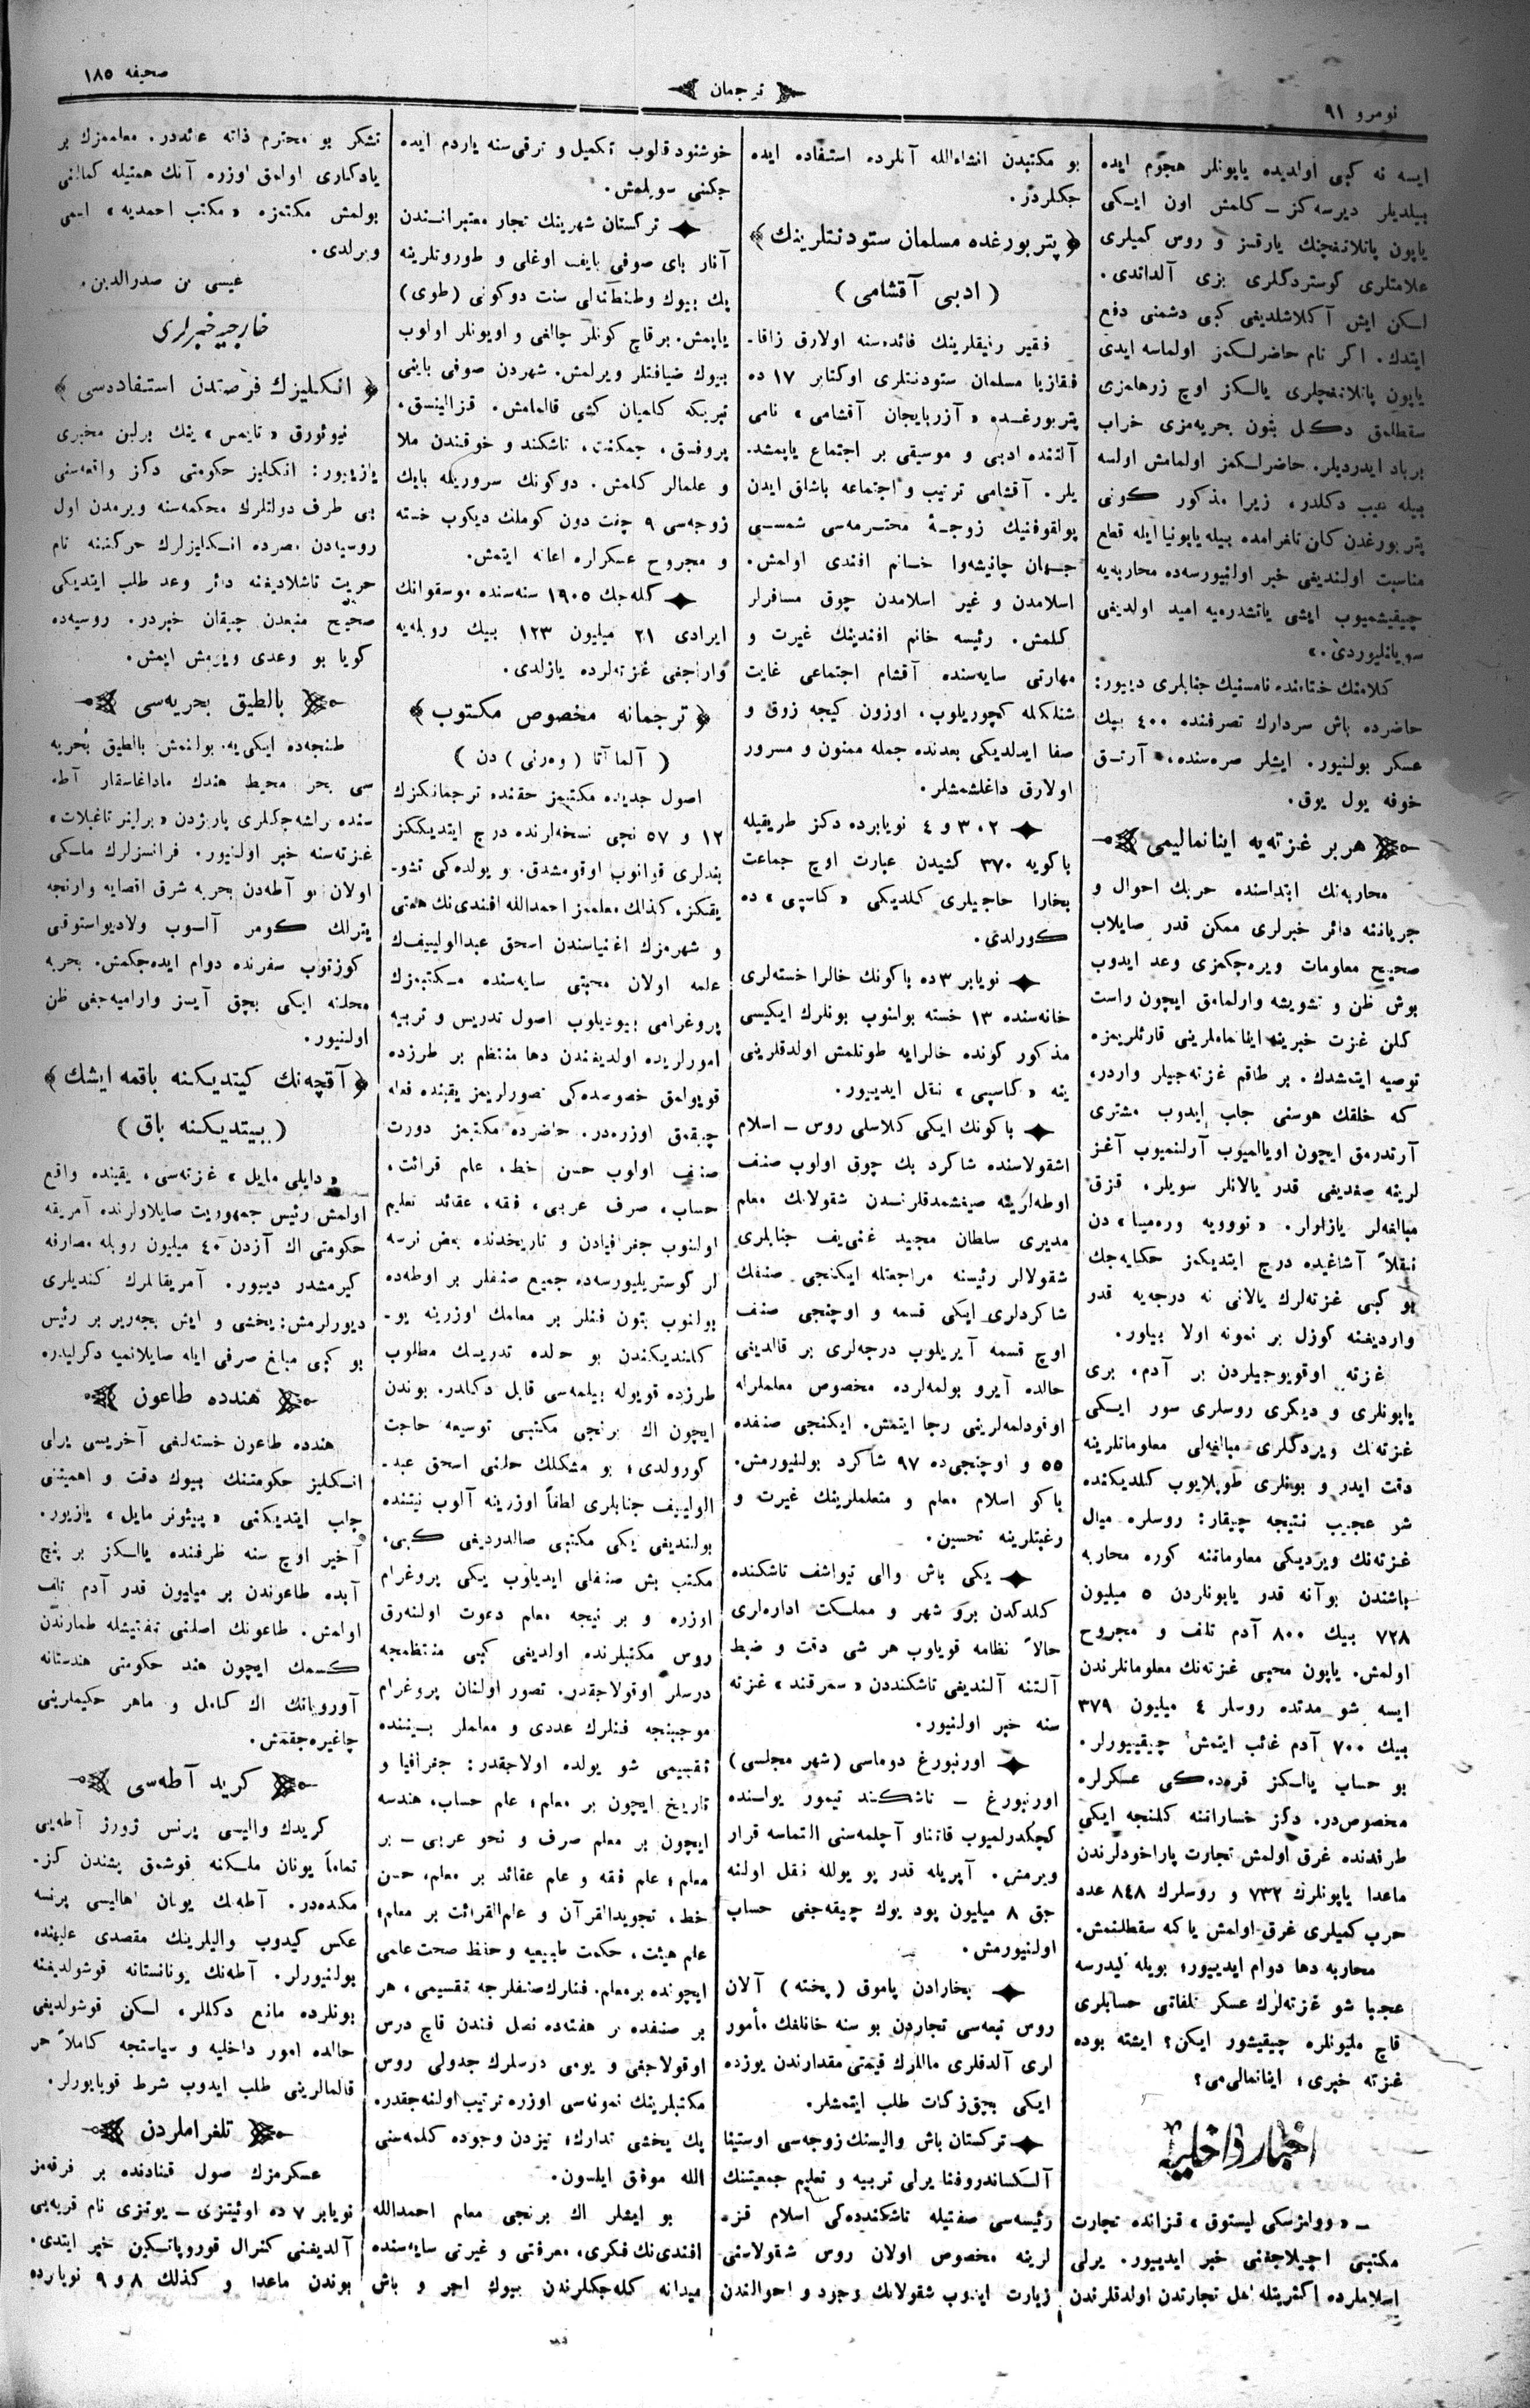 نومرو ٩١
ترجمان
صحيفه ١٨٥
ايسه نه كبى اولديده ياپونلر هجوم ايده
بيلديلر ديرسه‌كز ــ كلمش اون ايكى
ياپون پانلانفچنك يارقسز و روس كميلرى
علامتلرى كوستردكلرى بزى آلداندى.
لسكن ايش آكلاشلديغى كبى دشمنى دفع
ايتدك. اكر نام حاضرلكمز اولماسه ايدى
ياپون پانلانفچلرى يالكز اوچ زرهلمزى
سقطلمق دكل بتون بحريه‌مزى خراب
برباد ايدرديلر. حاضرلكمز اولمامش اولسه
بيله عيب دكلدر، زيرا مذكور كونى
پتربورغدن كلن تلغرامده بيله ياپونيا ايله قطع
مناسبت اولنديغى خبر اولنيورسه‌ده محاربه‌يه
چيقيشميوب ايشى ياتشدرميه اميد اولديغى
سويلنليوردى.»
كلامنك ختامنده نامسنيك جنابلرى ديبور:
حاضرده باش سردارك تصرفنده ٤٠٠ بيك
عسكر بولنيور. ايشلر صره‌سنده، آرتق
خوفه يول يوق.
هر بر غزته‌يه اينانماليمى
محاربه‌نك ابتداسنده حربك احوال و
جرياننه دائر خبرلرى ممكن قدر صايلاب
صحيح معلومات ويره‌جكمزى وعد ايدوب
بوش ظن و تشويشه وارلمامق ايچون راست
كلن غزت خبرينه اينانماملرينى قارئلريمزه
توصيه ايتمشدك. بر طاقم غزته‌جيلر واردر،
كه خلقك هوسنى جلب ايدوب مشترى
آرتدرمق ايچون اويالميوب آرلنميوب آغز
لرينه صغديغى قدر يالانلر سويلر، قزق
مبالغه‌لر يازارلر. «نوويه وره‌ميا» دن
نقلاً آشاغيده درج ايتديكمز حكايه‌جك
بو كبى غزته‌لرك يالانى نه درجه‌يه قدر
وارديغنه كوزل بر نمونه اولا بيلور.
غزته اوقويوجيلردن بر آدم، برى
ياپونلرى و ديكرى روسلرى سور ايكى
غزته‌نك ويردكلرى مبالغه‌لى معلوماتلرينه
دقت ايدر و بونلرى طوپلايوب كلديكنده
شو عجيب نتيجه چيقار: روسلره ميال
غزته‌نك ويرديكى معلوماتنه كوره محاربه
باشندن بو آنه قدر ياپونلردن ٥ ميليون
٧٢٨ بيك ٨٠٠ آدم تلف و مجروح
اولمش. ياپون محبى غزته‌نك معلوماتلرندن
ايسه شو مدتده روسلر ٤ ميليون ٣٧٩
بيك ٧٠٠ آدم غائب ايتمش چيقييورلر.
بو حساب يالكز قره‌ده‌كى عسكرلره
مخصوصدر. دكز خساراتنه كلنجه ايكى
طرفدنده غرق اولمش تجارت پاراخودلرندن
ماعدا ياپونلرك ٧٣٢ و روسلرك ٨٤٨ عدد
حرب كميلرى غرق اولمش ياكه سقطلنمش.
محاربه دها دوام ايدييور؛ بويله كيدرسه
عجبا شو غزته‌لرك عسكر تلفاتى حسابلرى
قاچ مليونلره چيقيشور ايكن؟ ايشته بوده
غزته خبرى؛ اينانمالى‌مى؟
اخبار داخليه
ــ «وولژسكى ليستوق» قزانده تجارت
مكتبى اچيلاجغنى خبر ايدييور. يرلى
اسلاملرده اكثريتله اهل تجارتدن اولدقلرندن
بو مكتبدن انشاءالله آنلرده استفاده ايده
جكلردر.
﴿ پتربورغده مسلمان ستودنتلرينك ﴾
( ادبى آقشامى )
فقير رفيقلرينك فائده‌سنه اولارق زاقا-
فقازيا مسلمان ستودنتلرى اوكتابر ١٧ ده
پتربورغده «آزربايجان آقشامى» نامى
آلتنده ادبى و موسيقى بر اجتماع ياپمشد-
يلر. آقشامى ترتيب و اجتماعه باشلق ايدن
پولقوفنيك زوجهٔ محترمه‌سى شمسى
جهان چانيشه‌وا خانم افندى اولمش.
اسلامدن و غير اسلامدن چوق مسافرلر
كلمش. رئيسه خانم افندينك غيرت و
مهارتى سايه‌سنده آقشام اجتماعى غايت
شنلكله كچوريلوب، اوزون كيجه زوق و
صفا ايدلديكى بعدنده جمله ممنون و مسرور
اولارق داغلشمشلر.
٢،٣ و ٤ نويابرده دكز طريقيله
باكويه ٣٧٠ كشيدن عبارت اوچ جماعت
بخارا حاجيلرى كلديكى «كاسپى» ده
كورلدى.
نويابر ٣ ده باكونك خالرا خسته‌لرى
خانه‌سنده ١٣ خسته بولنوب بونلرك ايكيسى
مذكور كونده خالرايه طوتلمش اولدقلرينى
ينه «كاسپى» نقل ايدييور.
باكونك ايكى كلاسلى روس ــ اسلام
اشقولاسنده شاكرد پك چوق اولوب صنف
اوطه‌لرينه صيغشمدقلرنسدن شقولانك معلم
مديرى سلطان مجيد غنى‌يف جنابلرى
شقولالر رئيسنه مراجعتله ايكنجى صنفك
شاكردلرى ايكى قسمه و اوچنجى صنف
اوچ قسمه آيريلوب درجه‌لرى بر قالديغى
حالده آيرو بولمه‌لرده مخصوص معلملرله
اوقودلمه‌لرينى رجا ايتمش. ايكنجى صنفده
٥٥ و اوچنجى‌ده ٩٧ شاكرد بولنيورمش.
باكو اسلام معلم و متعلملرينك غيرت و
رغبتلرينه تحسين.
يكى باش والى تيواشف تاشكنده
كلدكدن برو شهر و مملكت اداره‌لرى
حالاً نظامه قويلوب هر شى دقت و ضبط
آلتنه آلنديغى تاشكنددن «سمرقند» غزته
سنه خبر اولنيور.
اورنبورغ دوماسى (شهر مجلسى)
اورنبورغ ــ تاشكند تيمور يولنده
كچكدرلميوب قاتناو آچلمه‌سنى التماسه قرار
ويرمش. آپريله قدر بو يولله نقل اولنه
جق ٨ ميليون پود يوك چيقه‌جغى حساب
اولنيورمش.
بخارادن پاموق (پخته) آلان
روس تبعه‌سى تجاردن بو سنه خانلفك مأمور
لرى آلدقلرى ماللرك قيمتى مقدارندن يوزده
ايكى بچق زكات طلب ايتمشلر.
تركستان باش واليسنك زوجه‌سى اوستينا
آلكساندروفنا يرلى تربيه و تعليم جمعيتنك
رئيسه‌سى صفتيله تاشكندده‌كى اسلام قز-
لرينه مخصوص اولان روس شقولاسنى
زيارت ايدوب شقولانك وجود و احوالندن
خوشنود قالوب تكميل و ترقى‌سنه ياردم ايده
جكنى سويلمش.
تركستان شهرينك تجار معتبرانندن
آنار باى صوفى بايف اوغلى و طورونلرينه
پك بيوك و طنطنه‌لى سنت دوكونى (طوى)
ياپمش. بر قاچ كونلر چالغى و اويونلر اولوب
بيوك ضيافتلر ويرلمش. شهردن صوفى باينى
تبريكه كلميان كشى قالمامش. قزالينسق،
پروفسق، چمكنت، تاشكند و خوقنددن ملا
و علمالر كلمش. دوكونك سروريله بايك
زوجه‌سى ٩ چفت دون كوملك ديكوب خسته
و مجروح عسكرلره اعانه ايتمش.
كله‌جك ١٩٠٥ سنه‌سنده موسقوانك
ايرادى ٢١ ميليون ١٢٣ بيك روبله‌يه
واراجغى غزته‌لرده يازلدى.
﴿ ترجمانه مخصوص مكتوب ﴾
( آلما آتا (وه‌رنى) دن )
اصول جديده مكتبمز حقنده ترجمانكزك
١٢ و ٥٧ نجى نسخه‌لرنده درج ايتديككز
بندلرى قوانوب اوقومشدق. و يولده‌كى تشو-
يقكز، كذالك معلممز احمدالله افندى‌نك همتى
و شهرمزك اغنياسندن اسحق عبدالولييفك
علمه اولان محبتى سايه‌سنده مكتبمزك
پروغرامى بيوديلوب اصول تدريس و تربيه
امورلريده اولديغندن دها منتظم بر طرزده
قويولمق خصوصده‌كى تصورلريمز يقينده فعله
چيقمق اوزره‌در. حاضرده مكتبمز دورت
صنف اولوب حسن خط، علم قرائت،
حساب، صرف عربى، فقه، عقائد تعليم
اولنوب جغرافيادن و تاريخدنده بعض نرسه
لر كوستريليورسه‌ده جميع صنفلر بر اوطه‌ده
بولنوب بتون فنلر بر معلمك اوزرينه يو-
كلنديكندن بو حالده تدريسك مطلوب
طرزده قويوله بيلمه‌سى قابل دكلدر. بوندن
ايچون اك برنجى مكتبى توسيعه حاجت
كورولدى؛ بو مشكلك حلنى اسحق عبد-
الولييف جنابلرى لطفاً اوزرينه آلوب نيتنده
بولنديغى يكى مكتبى صالدرديغى كبى،
مكتب بش صنفلى ايديلوب يكى پروغرام
اوزره و بر نيجه معلم دعوت اولنه‌رق
روس مكتبلرنده اولديغى كبى منتظمجه
درسلر اوقولاجقدر. تصور اولنان پروغرام
موجبنجه فنلرك عددى و معلملر بيننده
تقسيمى شو يولده اولاجقدر: جغرافيا و
تاريخ ايچون بر معلم؛ علم حساب، هندسه
ايچون بر معلم صرف و نحو عربى ــ بر
معلم؛ علم فقه و علم عقائد بر معلم، حسن
خط، تجويدالقرآن و علم‌القرائت بر معلم؛
علم هيئت، حكمت طبيعيه و حفظ صحت علمى
ايچونده بر معلم. فنلرك صنفلرجه تقسيمى، هر
بر صنفده هر هفته‌ده نصل فندن قاچ درس
اوقولاجغى و يومى درسلرك جدولى روس
مكتبلرينك نمونه‌سى اوزره ترتيب اولنه‌جقدر.
پك يخشى تدارك؛ تيزدن وجوده كلمه‌سنى
الله موفق ايلسون.
بو ايشلر اك برنجى معلم احمدالله
افندى‌نك فكرى، معرفتى و غيرتى سايه‌سنده
ميدانه كله‌جكلرندن بيوك اجر و باش
تشكر بو محترم ذاته عائددر. معلممزك بر
يادكارى اولمق اوزره آنك همتيله كمالنى
بولمش مكتبمزه «مكتب احمديه» اسمى
ويرلدى.
عيسى بن صدرالدين.
خارجيه خبرلرى
﴿ انكليزك فرصتدن استفاده‌سى ﴾
نيوئورق «تايمس» ينك برلين مخبرى
يازييور: انكليز حكومتى دكز واقعه‌سنى
بى طرف دولتلرك محكمه‌سنه ويرمدن اول
روسيه‌دن مصرده انكليزلرك حركتنه تام
حريت تاشلاديغنه دائر وعد طلب ايتديكى
صحيح منبعدن چيقان خبردر. روسيه‌ده
كويا بو وعدى ويرمش ايمش.
بالطيق بحريه‌سى
طنجه‌ده ايكى‌يه بولنمش بالطيق بحريه
سى بحر محيط هندك ماداغاسقار آطه
سنده راشه‌جكلرى پاريژدن «برلينر تاغبلات»
غزته‌سنه خبر اولنيور. فرانسزلرك ملكى
اولان بو آطه‌دن بحريه شرق اقصايه وارنجه
يترلك كومر آلسوب ولاديواستوقى
كوزتوب سفرنده دوام ايده‌جكمش. بحريه
محلنه ايكى بچق آيسز وارامیه‌جغى ظن
اولنيور.
﴿ آقچه‌نك كيتديكنه باقمه ايشك ﴾
( بيتديكنه باق )
«دايلى مايل» غزته‌سى، يقينده واقع
اولمش رئيس جمهوريت صايلاولرنده آمريقه
حكومتى اك آزدن ٤٠ ميليون روبله مصارفه
كيرمشدر ديبور. آمريقالرك كنديلرى
ديورلرمش: يخشى و ايش بجه‌رير بر رئيس
بو كبى مبلغ صرفى ايله صايلانميه دكرليدر.
هندده طاعون
هندده طاعون خسته‌لغى آخريسى يرلى
انكليز حكومتنك بيوك دقت و اهميتنى
جلب ايتديكنى «پيئونر مايل» يازيور.
آخير اوچ سنه ظرفنده يالكز بر پنج
آبده طاعوندن بر ميليون قدر آدم تلف
اولمش. طاعونك اصلنى تفتيشله طمارندن
كسمك ايچون هند حكومتى هندستانه
آوروپانك اك كامل و ماهر حكيملرينى
چاغيره‌جقمش.
كريد آطه‌سى
كريدك واليسى پرنس ژورژ آطه‌يى
تماماً يونان ملكنه قوشمق پشندن كز-
مكده‌در. آطه‌نك يونان اهاليسى پرنسه
عكس كيدوب واليلرينك مقصدى عليهنده
بولنيورلر. آطه‌نك يونانستانه قوشولديغنه
بونلرده مانع دكللر، لسكن قوشولديغى
حالده امور داخليه و سياستجه كاملاً حر
قالمالرينى طلب ايدوب شرط قويايورلر.
تلغراملردن
عسكرمزك صول قنادنده بر فرقه‌مز
نويابر ٧ ده اوئيتزى ــ يوتزى نام قريه‌يى
آلديغنى كنرال قوروپاتسكين خبر ايتدى.
بوندن ماعدا و كذلك ٨ و ٩ نويابرده